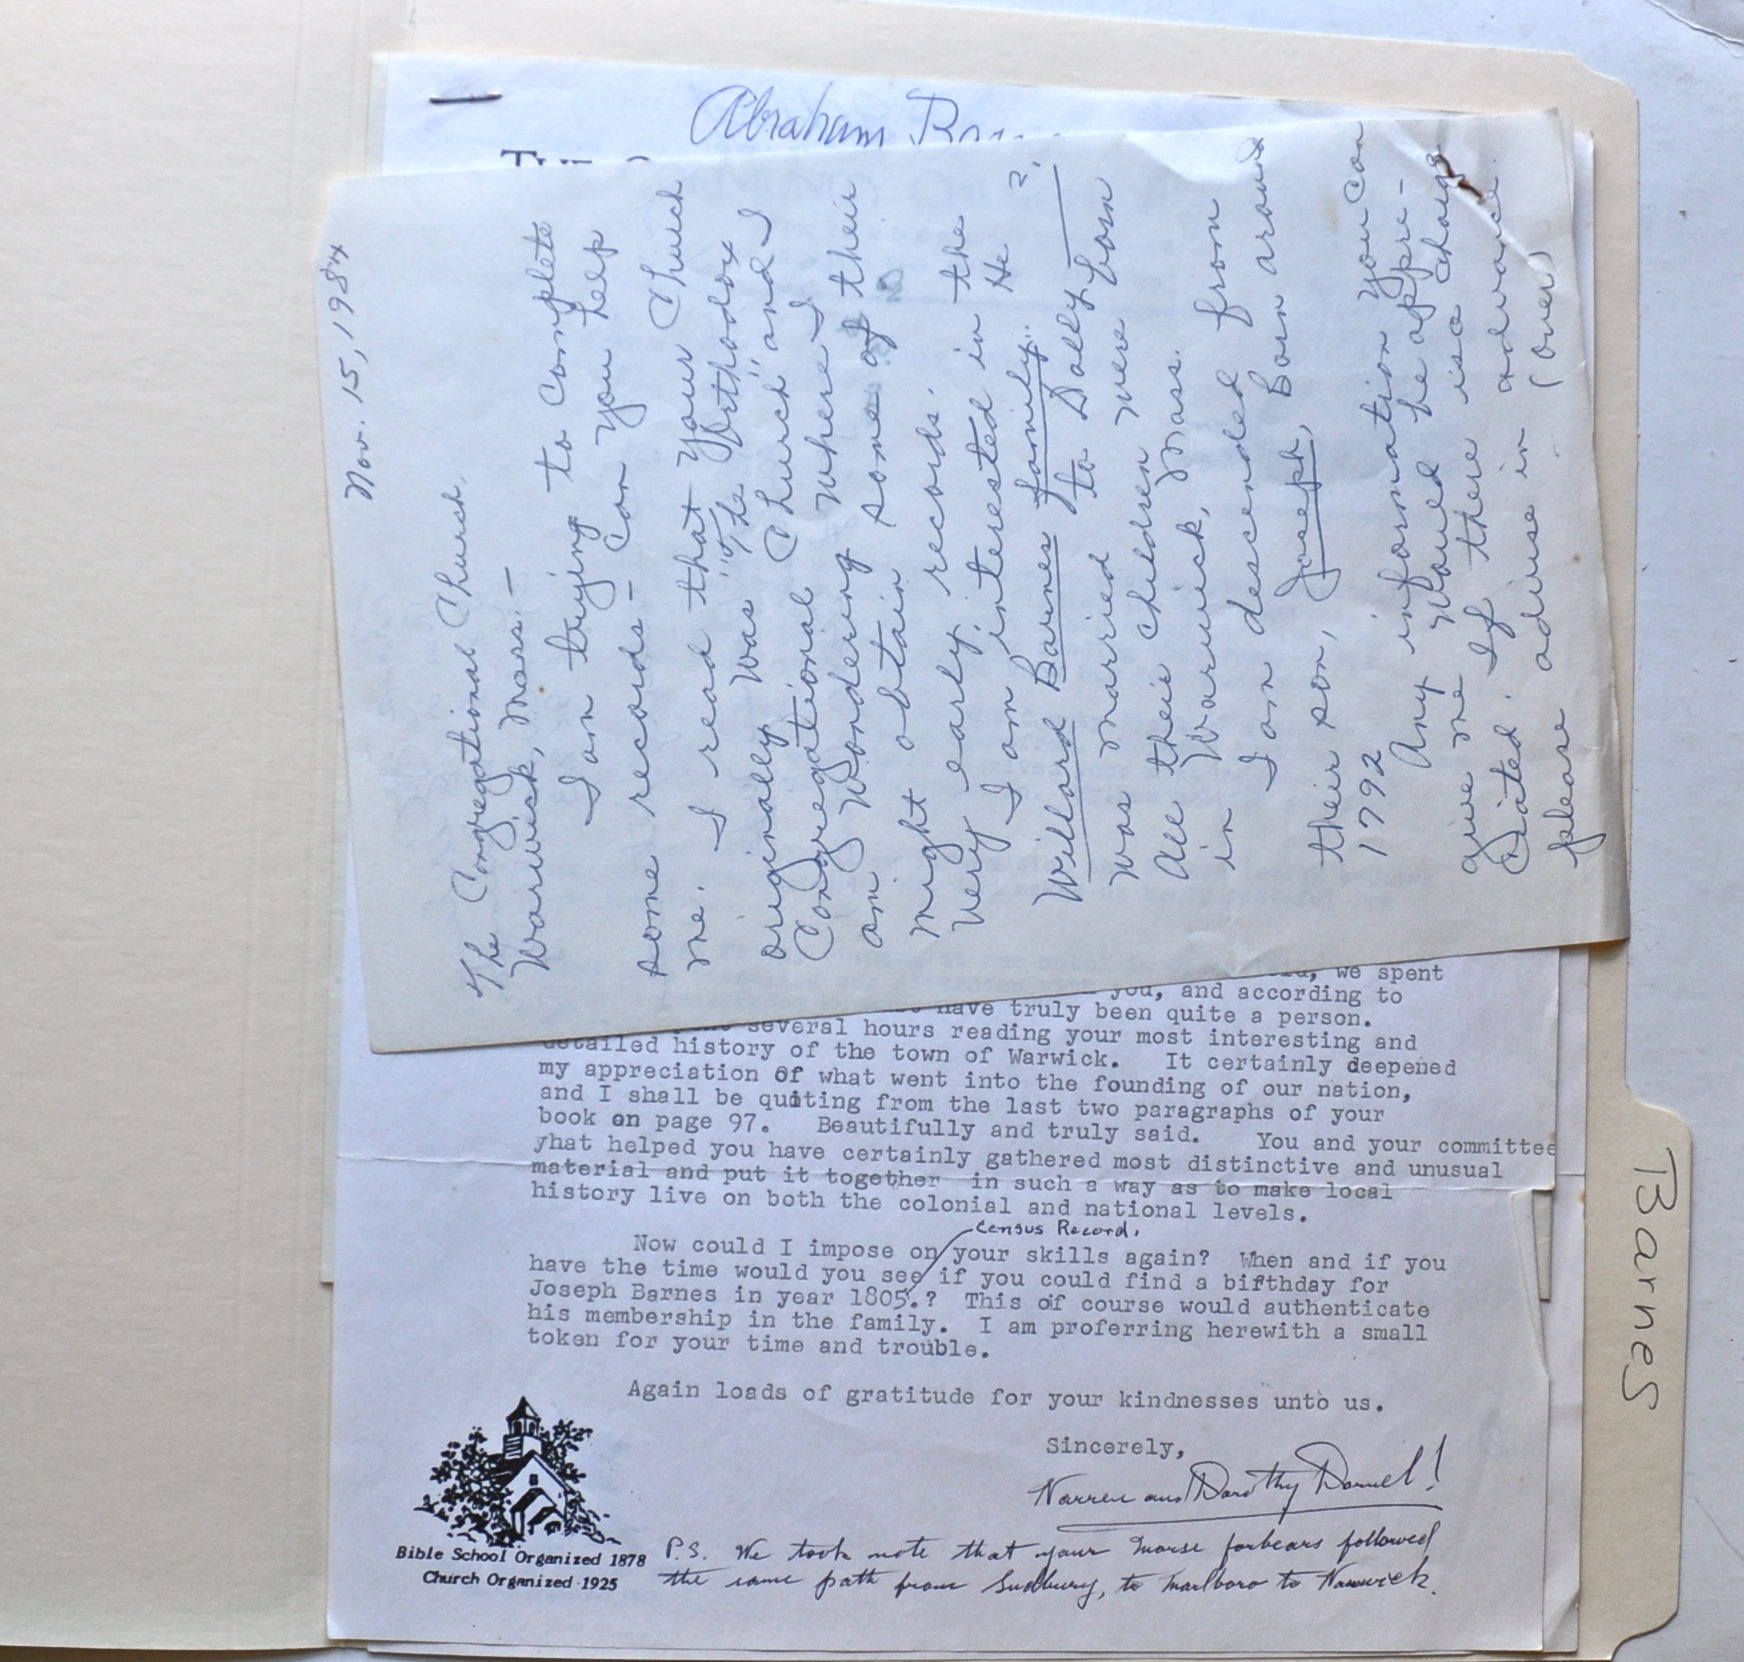 Abraham
Nov. 15, 1984
The Congregational Church,
Warwick, Mass. —
I am trying to complete
some records — Can you help
me. I read that your Church
originally was "The Orthodox
Congregational Church" and I
am wondering where I
might obtain some of their
very early records.
I am interested in the
Willard Barnes family.. He ?
was married to Dolly
All their children were born
in Warwick, Mass.
I am descended from
their son, Joseph, Born around
1792
Any information you can
give me would be appre-
ciated. If there is a charge
please advise in advance.
(over)
we spent
you, and according to
have truly been quite a person.
several hours reading your most interesting and
detailed history of the town of Warwick. It certainly deepened
my appreciation of what went into the founding of our nation,
and I shall be quoting from the last two paragraphs of your
book on page 97. Beautifully and truly said. You and your committee
yhat helped you have certainly gathered most distinctive and unusual
material and put it together in such a way as to make local
history live on both the colonial and national levels.
Census Record.
Now could I impose on your skills again? When and if you
have the time would you see if you could find a birthday for
Joseph Barnes in year 1805.? This of course would authenticate
his membership in the family. I am proferring herewith a small
token for your time and trouble.
Again loads of gratitude for your kindnesses unto us.
Sincerely,
Warren and Dorothy
P.S. We took note that your Morse forbears followed
the same path from Sudbury, to Marlboro to Warwick.
Bible School Organized 1878
Church Organized 1925
Barnes